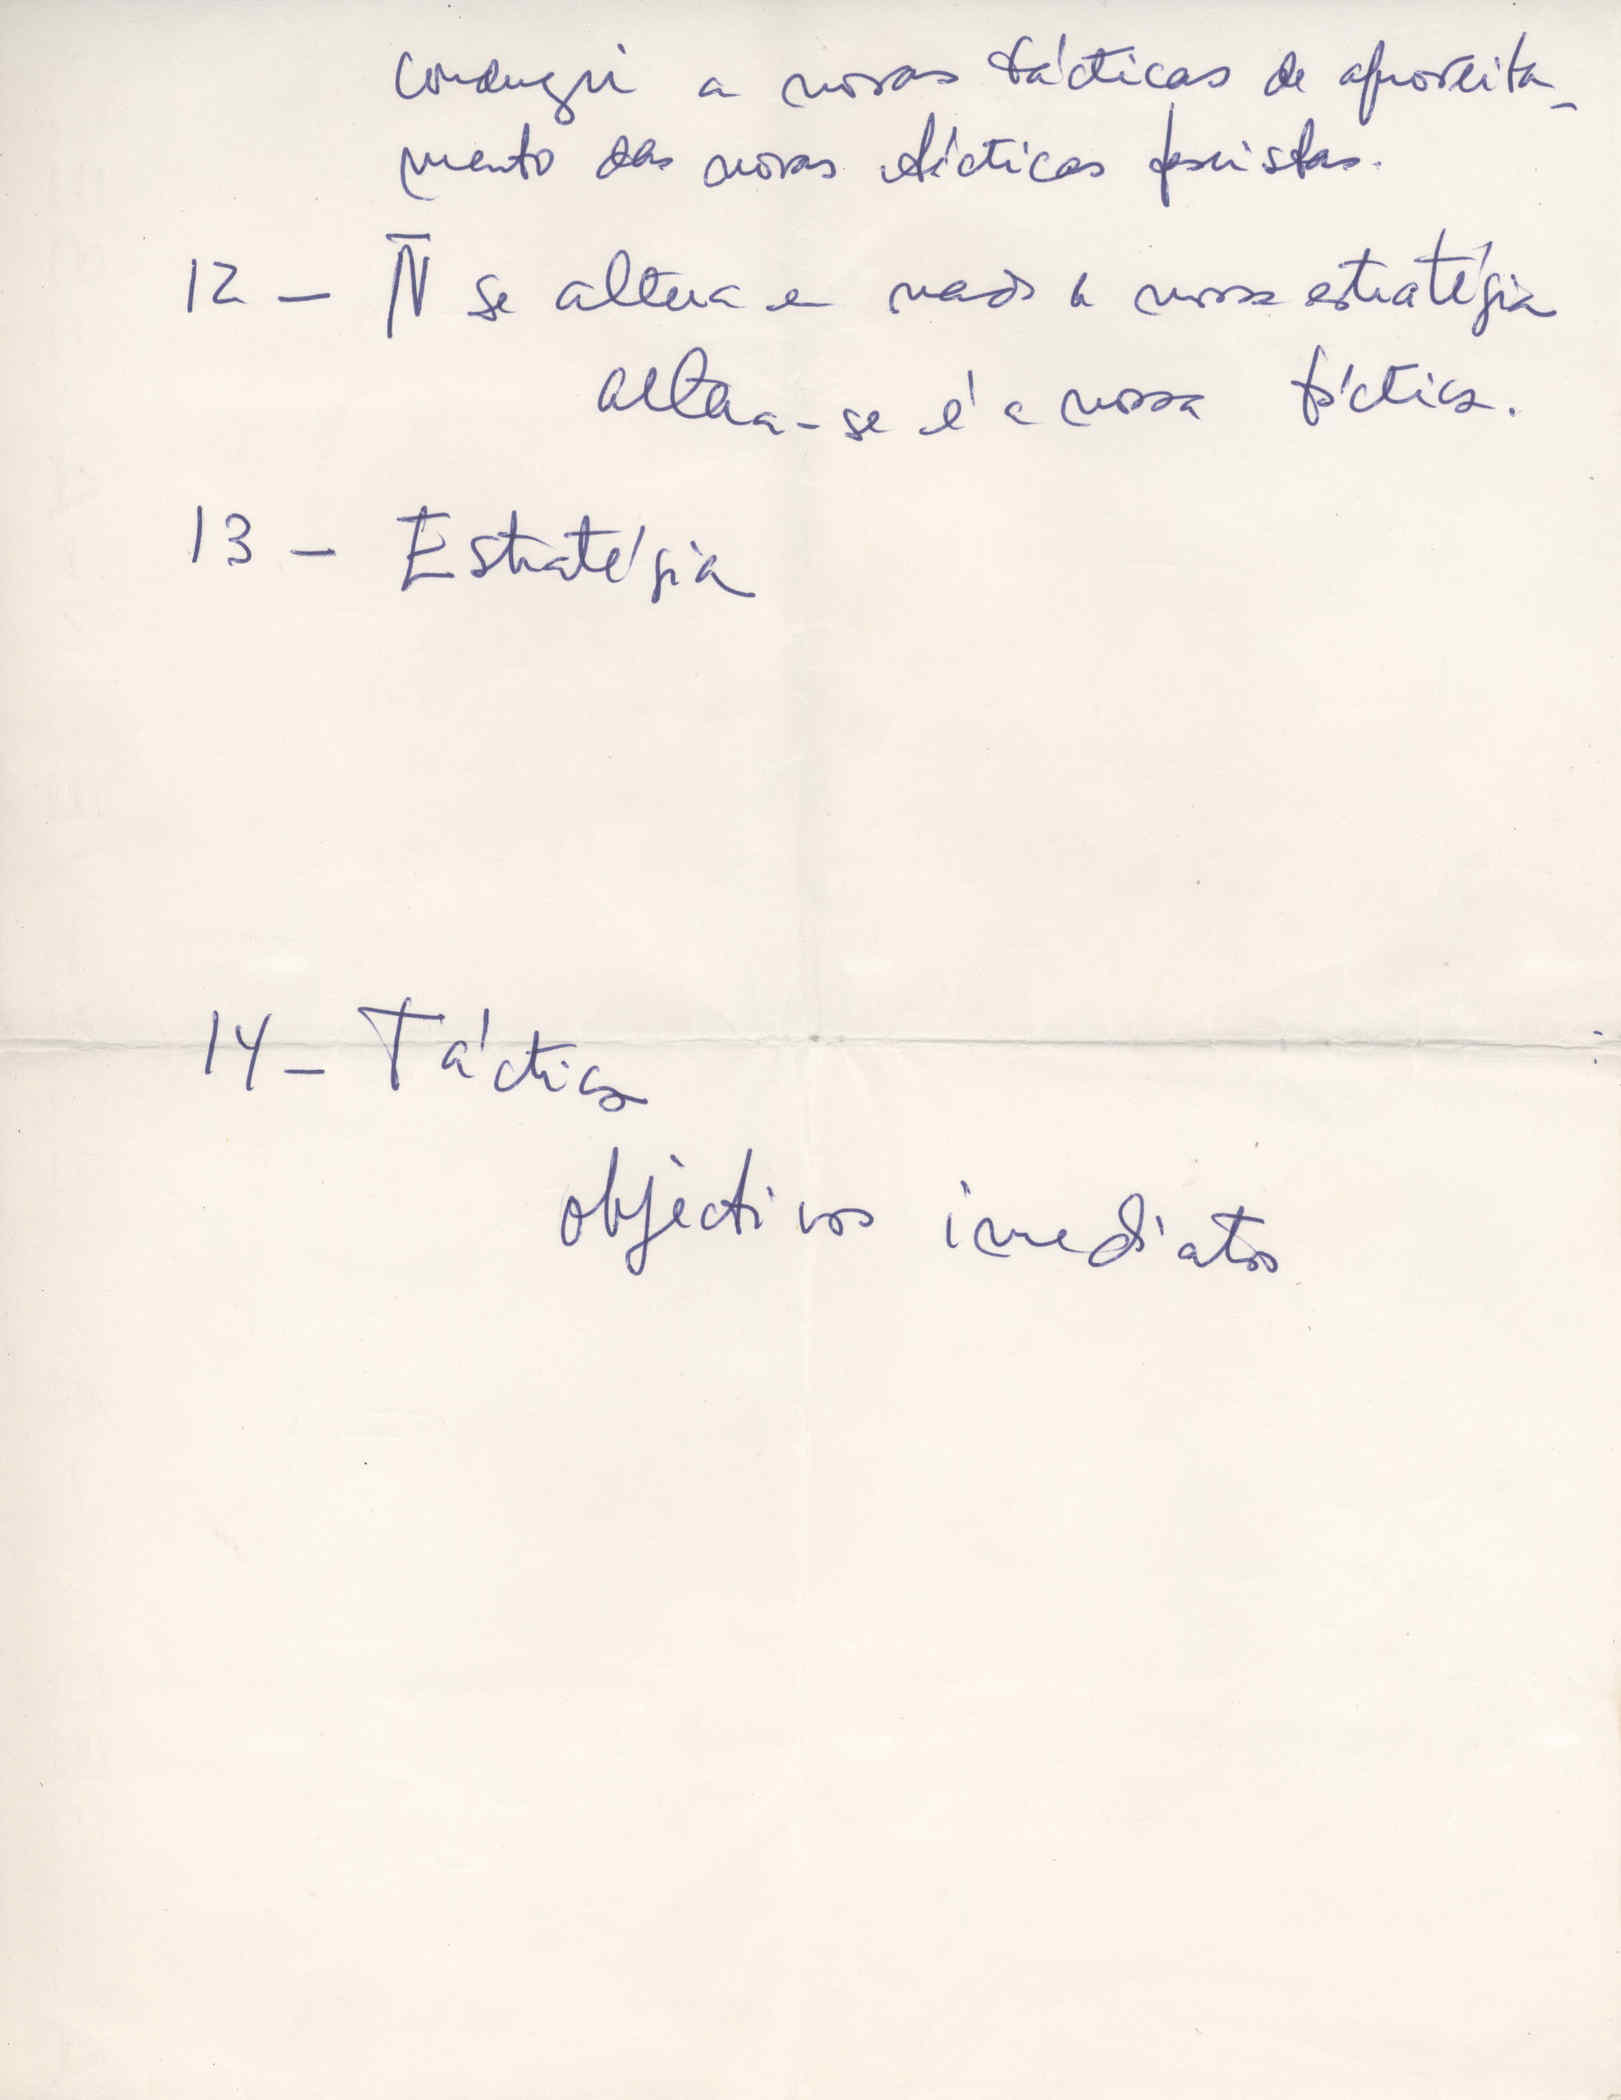 conduzir a novas tácticas de aproveita-
mento das novas tácticas fascistas.
12 — N̄ se altera em nada a nossa estratégia
altera-se é a nossa táctica.
13 — Estratégia
14 — Táctica
objectivos imediatos